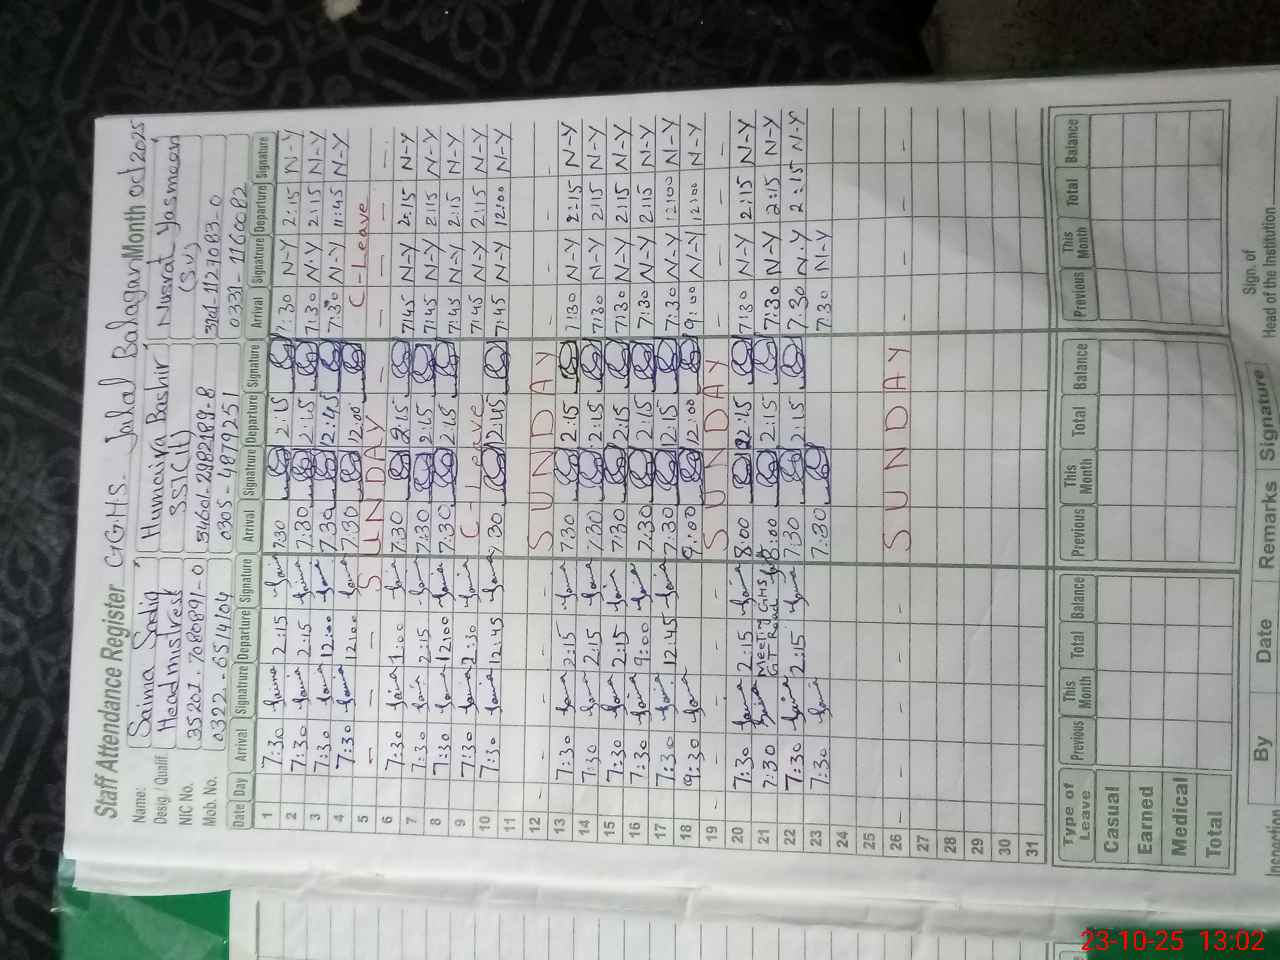 Staff Attendance Register GGHS. Jalal Balagan Month oct 2025
Name: Saima Sadiq Humaira Bashir Nusrat Yasmeen
Desig. / Qualif. Headmistress SS(H) (S.V)
NIC No. 35201-7080891-0 34601-2982189-8
Mob. No. 0322-6514104 0305-4879251 0331-1160082
Date Day Arrival Signature Departure Signature Arrival Signature Departure Signature Arrival Signature Departure Signature
1 7:30 Saima 2:15 Saima 7:30 2:15 7:30 N-Y 2:15 N-Y
2 7:30 Saima 2:15 Saima 7:30 2:15 7:30 N-Y 2:15 N-Y
3 7:30 Saima 12:00 Saima 7:30 12:45 7:30 N-Y 11:45 N-Y
4 7:30 Saima 12:00 Saima 7:30 12:00 C-Leave
5 — — SUNDAY — — —
6 7:30 Saima 1:00 Saima 7:30 2:15 7:45 N-Y 2:15 N-Y
7 7:30 Saima 2:15 Saima 7:30 2:15 7:45 N-Y 2:15 N-Y
8 7:30 Saima 12:00 Saima 7:30 2:15 7:45 N-Y 2:15 N-Y
9 7:30 Saima Saima C-Leave 7:45 N-Y 2:15 N-Y
10 7:30 Saima 12:45 Saima 7:30 12:45 7:45 N-Y 12:00 N-Y
11
12 - - - - SUNDAY - - - -
13 7:30 Saima 2:15 Saima 7:30 2:15 7:30 N-Y 2:15 N-Y
14 7:30 Saima 2:15 Saima 7:30 2:15 7:30 N-Y 2:15 N-Y
15 7:30 Saima 2:15 Saima 7:30 2:15 7:30 N-Y 2:15 N-Y
16 7:30 Saima 9:00 Saima 7:30 2:15 7:30 N-Y 2:15 N-Y
17 7:30 Saima 12:45 Saima 7:30 2:15 7:30 N-Y 12:00 N-Y
18 9:30 Saima 9:00 12:00 9:00 N-Y 12:00 N-Y
19 - - - - SUNDAY - - - -
20 7:30 Saima 2:15 Saima 8:00 2:15 7:30 N-Y 2:15 N-Y
21 7:30 Saima Meeting GHS GT Road 8:00 2:15 7:30 N-Y 2:15 N-Y
22 7:30 Saima 2:15 Saima 7:30 2:15 7:30 N-Y 2:15 N-Y
23 7:30 Saima 7:30 7:30 N-Y
24
25
26 - - - - SUNDAY - - - -
27
28
29
30
31
Type of Leave Previous This Month Total Balance Previous This Month Total Balance Previous This Month Total Balance
Casual
Earned
Medical
Total
Sign. of
Head of the Institution
By Date Remarks Signature
23-10-25 13:02